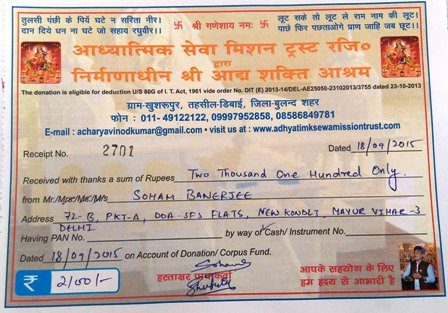 तुलसी पंछी के पियें घटे न सरिता नीर।
दान दिये धन ना घटे जो सहाय रघुवीर।।
॥ श्री गणेशाय नमः ॥
लूट सके तो लूट ले राम नाम की लूट।
पाछे फिर पछताओगे प्राण जाहि जब छूट।।
आध्यात्मिक सेवा मिशन ट्रस्ट रजि०
द्वारा
निर्माणाधीन श्री आद्य शक्ति आश्रम
The donation is eligible for deduction U/S 80G of I. T. Act, 1961 vide order No. DIT (E) 2013-14/DEL-AE25050-23102013/3755 dated 23-10-2013
ग्राम-खुशरूपुर, तहसील-डिबाई, जिला-बुलन्द शहर
फोन : 011- 49122122, 09997952858, 08586849781
E-mail : acharyavinodkumar@gmail.com • visit us at : www.adhyatimksewamissiontrust.com
Receipt No. 2701 Dated 18/09/2015
Received with thanks a sum of Rupees Two Thousand One Hundred Only.
from Mr./Mrs./Ms./M/s SOHAM BANERJEE
Address 72-B, PKT-A, DDA-SFS FLATS, NEW KONDLI, MAYUR VIHAR-3
DELHI
Having PAN No. by way of Cash/ Instrument No.
Dated 18/09/2015 on Account of Donation/ Corpus Fund.
₹ 2,100/-
Soham
हस्ताक्षर
आपके सहयोग के लिए
हम हृदय से आभारी है